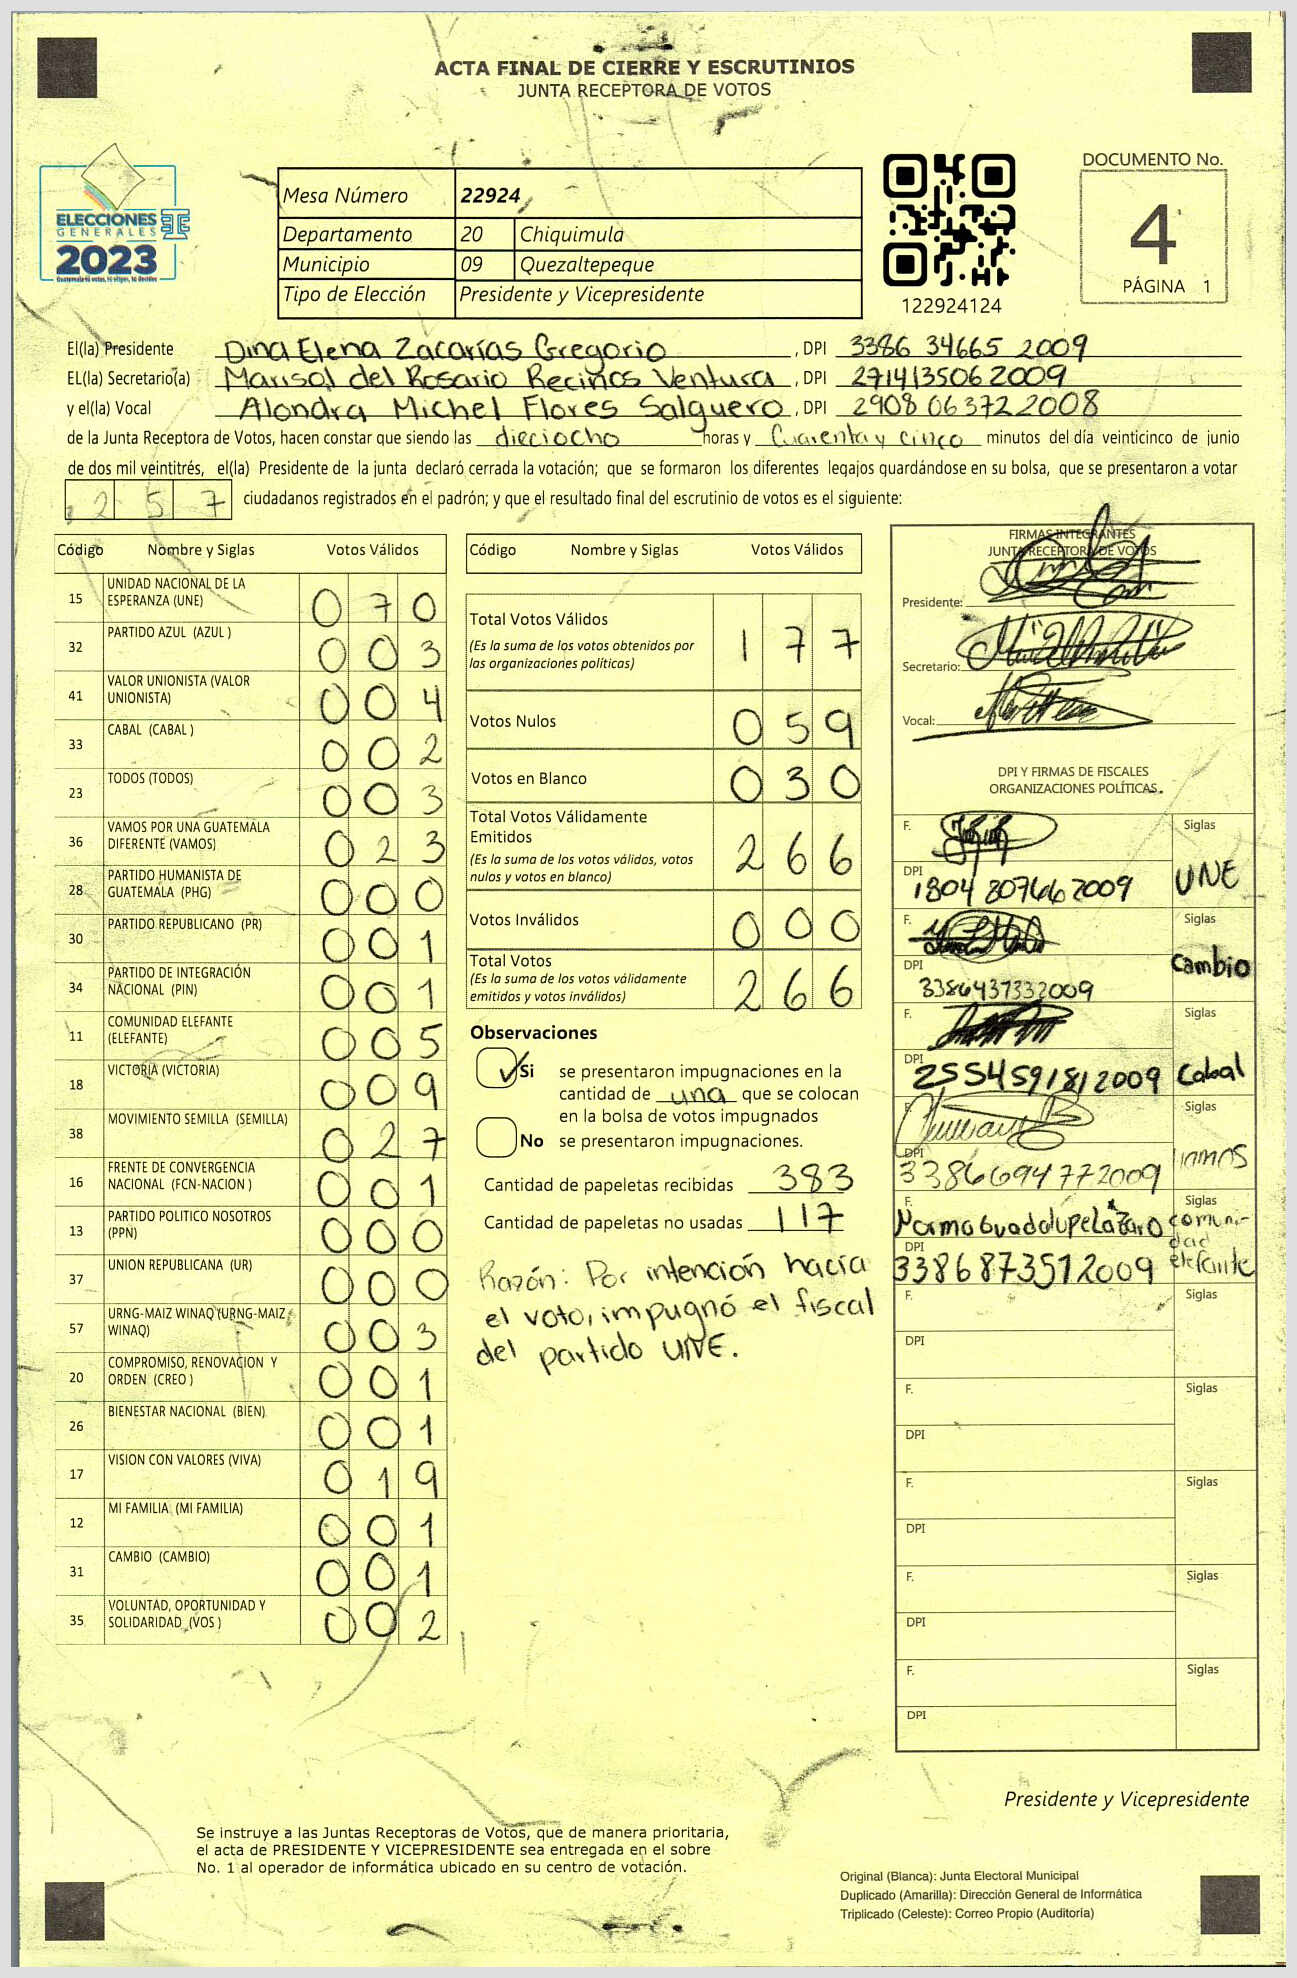 ACTA FINAL DE CIERRE Y ESCRUTINIOS
JUNTA RECEPTORA DE VOTOS
ELECCIONES
GENERALES
2023
Mesa Número 22924
Departamento 20 Chiquimula
Municipio 09 Quezaltepeque
Tipo de Elección Presidente y Vicepresidente
122924124
DOCUMENTO No.
4
PÁGINA 1
El(la) Presidente Dina Elena Zacarías Gregorio , DPI 3386 34665 2009
EL(la) Secretario(a) Marisol del Rosario Recinos Ventura , DPI 2714135062009
y el(la) Vocal Alondra Michel Flores Salguero , DPI 2908 06372 2008
de la Junta Receptora de Votos, hacen constar que siendo las dieciocho horas y Cuarenta y cinco minutos del día veinticinco de junio
de dos mil veintitrés, el(la) Presidente de la junta declaró cerrada la votación; que se formaron los diferentes legajos guardándose en su bolsa, que se presentaron a votar
257 ciudadanos registrados en el padrón; y que el resultado final del escrutinio de votos es el siguiente:
Código Nombre y Siglas Votos Válidos
15 UNIDAD NACIONAL DE LA ESPERANZA (UNE) 070
32 PARTIDO AZUL (AZUL ) 003
41 VALOR UNIONISTA (VALOR UNIONISTA) 004
33 CABAL (CABAL ) 002
23 TODOS (TODOS) 003
36 VAMOS POR UNA GUATEMALA DIFERENTE (VAMOS) 023
28 PARTIDO HUMANISTA DE GUATEMALA (PHG) 000
30 PARTIDO REPUBLICANO (PR) 001
34 PARTIDO DE INTEGRACIÓN NACIONAL (PIN) 001
11 COMUNIDAD ELEFANTE (ELEFANTE) 005
18 VICTORIA (VICTORIA) 009
38 MOVIMIENTO SEMILLA (SEMILLA) 027
16 FRENTE DE CONVERGENCIA NACIONAL (FCN-NACION ) 001
13 PARTIDO POLITICO NOSOTROS (PPN) 000
37 UNION REPUBLICANA (UR) 000
57 URNG-MAIZ WINAQ (URNG-MAIZ WINAQ) 003
20 COMPROMISO, RENOVACION Y ORDEN (CREO ) 001
26 BIENESTAR NACIONAL (BIEN) 001
17 VISION CON VALORES (VIVA) 019
12 MI FAMILIA (MI FAMILIA) 001
31 CAMBIO (CAMBIO) 001
35 VOLUNTAD, OPORTUNIDAD Y SOLIDARIDAD (VOS ) 002
Código Nombre y Siglas Votos Válidos
Total Votos Válidos 177
(Es la suma de los votos obtenidos por
las organizaciones políticas)
Votos Nulos 059
Votos en Blanco 030
Total Votos Válidamente
Emitidos 266
(Es la suma de los votos válidos, votos
nulos y votos en blanco)
Votos Inválidos 000
Total Votos 266
(Es la suma de los votos válidamente
emitidos y votos inválidos)
Observaciones
Si se presentaron impugnaciones en la
cantidad de una que se colocan
en la bolsa de votos impugnados
No se presentaron impugnaciones.
Cantidad de papeletas recibidas 383
Cantidad de papeletas no usadas 117
Razón: Por intención hacia
el voto, impugnó el fiscal
del partido UNE.
FIRMAS INTEGRANTES
JUNTA RECEPTORA DE VOTOS
Presidente:
Secretario:
Vocal:
DPI Y FIRMAS DE FISCALES
ORGANIZACIONES POLÍTICAS.
F. Siglas
DPI 1804 80766 2009 UNE
F. Siglas
DPI 3386437332009 Cambio
F. Siglas
DPI 2554591812009 Cabal
F. Siglas
DPI 3386694772009 Vamos
F. Norma Guadalupe Lázaro Siglas
DPI 3386873512009 comuni-
dad
elefante
F. Siglas
DPI
F. Siglas
DPI
F. Siglas
DPI
F. Siglas
DPI
F. Siglas
DPI
Presidente y Vicepresidente
Se instruye a las Juntas Receptoras de Votos, que de manera prioritaria,
el acta de PRESIDENTE Y VICEPRESIDENTE sea entregada en el sobre
No. 1 al operador de informática ubicado en su centro de votación.
Original (Blanca): Junta Electoral Municipal
Duplicado (Amarilla): Dirección General de Informática
Triplicado (Celeste): Correo Propio (Auditoría)